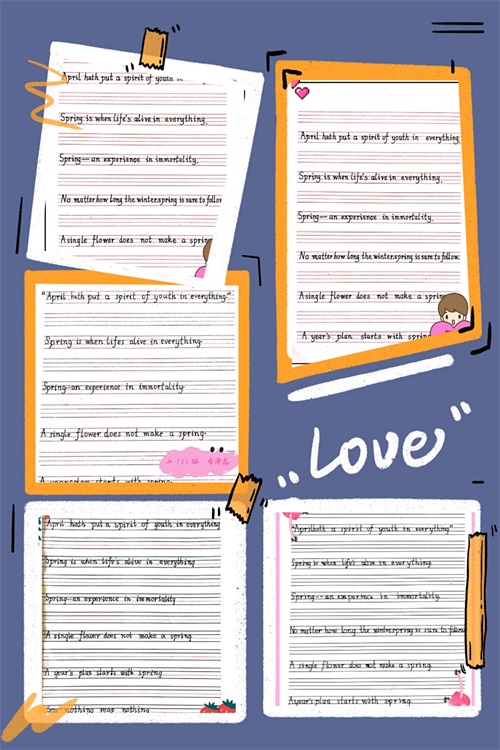 April hath put a spirit of youth in
Spring is when life's alive in everything.
Spring—an experience in immortality.
No matter how long the winter,spring is sure to follow
A single flower does not make a sprin
April hath put a spirit of youth in everything.
Spring is when life's alive in everything.
Spring—an experience in immortality.
No matter how long the winter,spring is sure to follow.
A single flower does not make a sprin
A year's plan starts with spring
"April hath put a spirit of youth in everything."
Spring is when lifes alive in everything.
Spring-an experience in immortality.
A single flower does not make a spring.
starts with spring.
"Love"
April hath put a spirit of youth in everything
Spring is when life's alive in everything
Spring--an experience in immortality
A single flower does not make a spring
A year's plan starts with spring
nothing was nothing
"Aprilhath a spirit of youth in everything"
Spring is when life's alive in everything.
Spring--an experience in immortality.
No matter how long the winter,spring is sure to follow
A single flower does not make a spring.
A year's plan starts with spring.